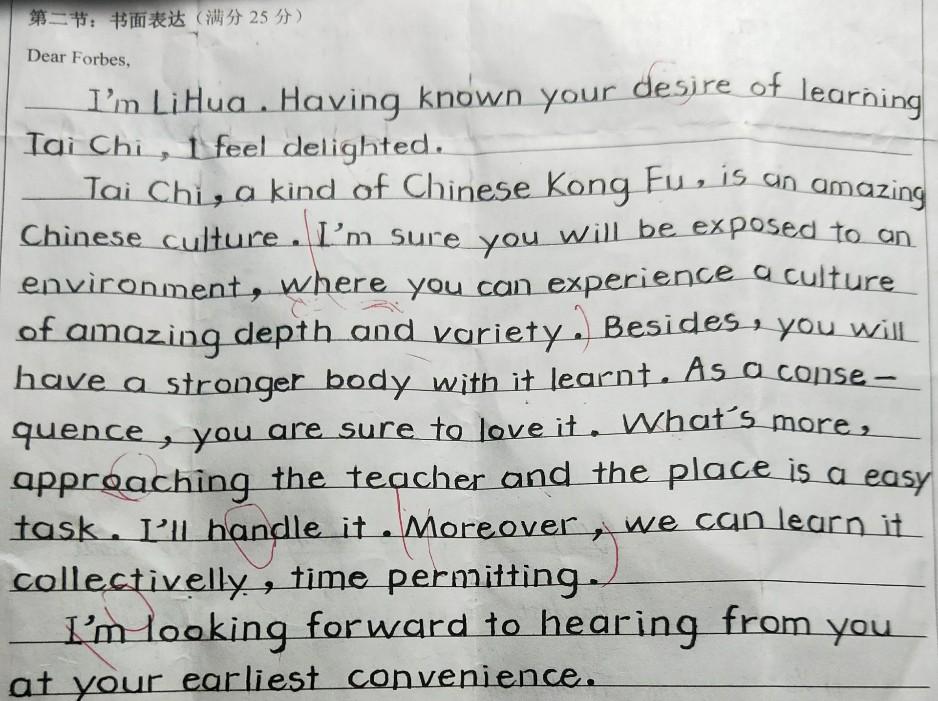 第二节：书面表达（满分 25 分）
Dear Forbes,
I'm LiHua. Having known your desire of learning
Tai Chi, I feel delighted.
Tai Chi, a kind of Chinese Kong Fu, is an amazing
Chinese culture. I'm sure you will be exposed to an
environment, where you can experience a culture
of amazing depth and variety. Besides, you will
have a stronger body with it learnt. As a conse-
quence, you are sure to love it. What's more,
approaching the teacher and the place is a easy
task. I'll handle it. Moreover, we can learn it
collectivelly, time permitting.
I'm looking forward to hearing from you
at your earliest convenience.